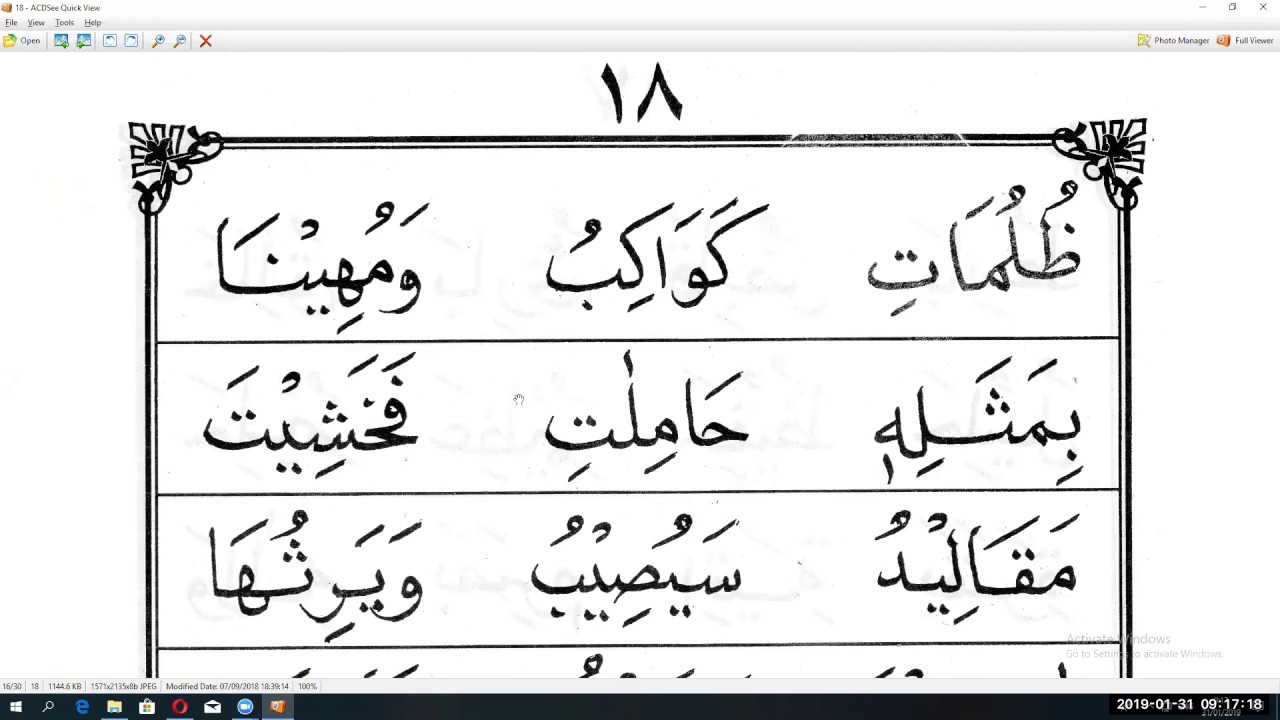 18 - ACDSee Quick View
File View Tools Help
Open Photo Manager Full Viewer
١٨
ظُلُمَاتِ كَوَاكِبُ وَمُهِيْنَا
بِمَثَلِهٖ حَامِلٰتِ فَخَشِيْتَ
مَقَالِيْدُ سَيُصِيْبُ وَيَرِثُهَا
Activate Windows
Go to Settings to activate Windows.
16/30 18 1144.6 KB 1571x2135x8b JPEG Modified Date: 07/09/2018 18:39:14 100%
2019-01-31 09:17:18
31/01/2019